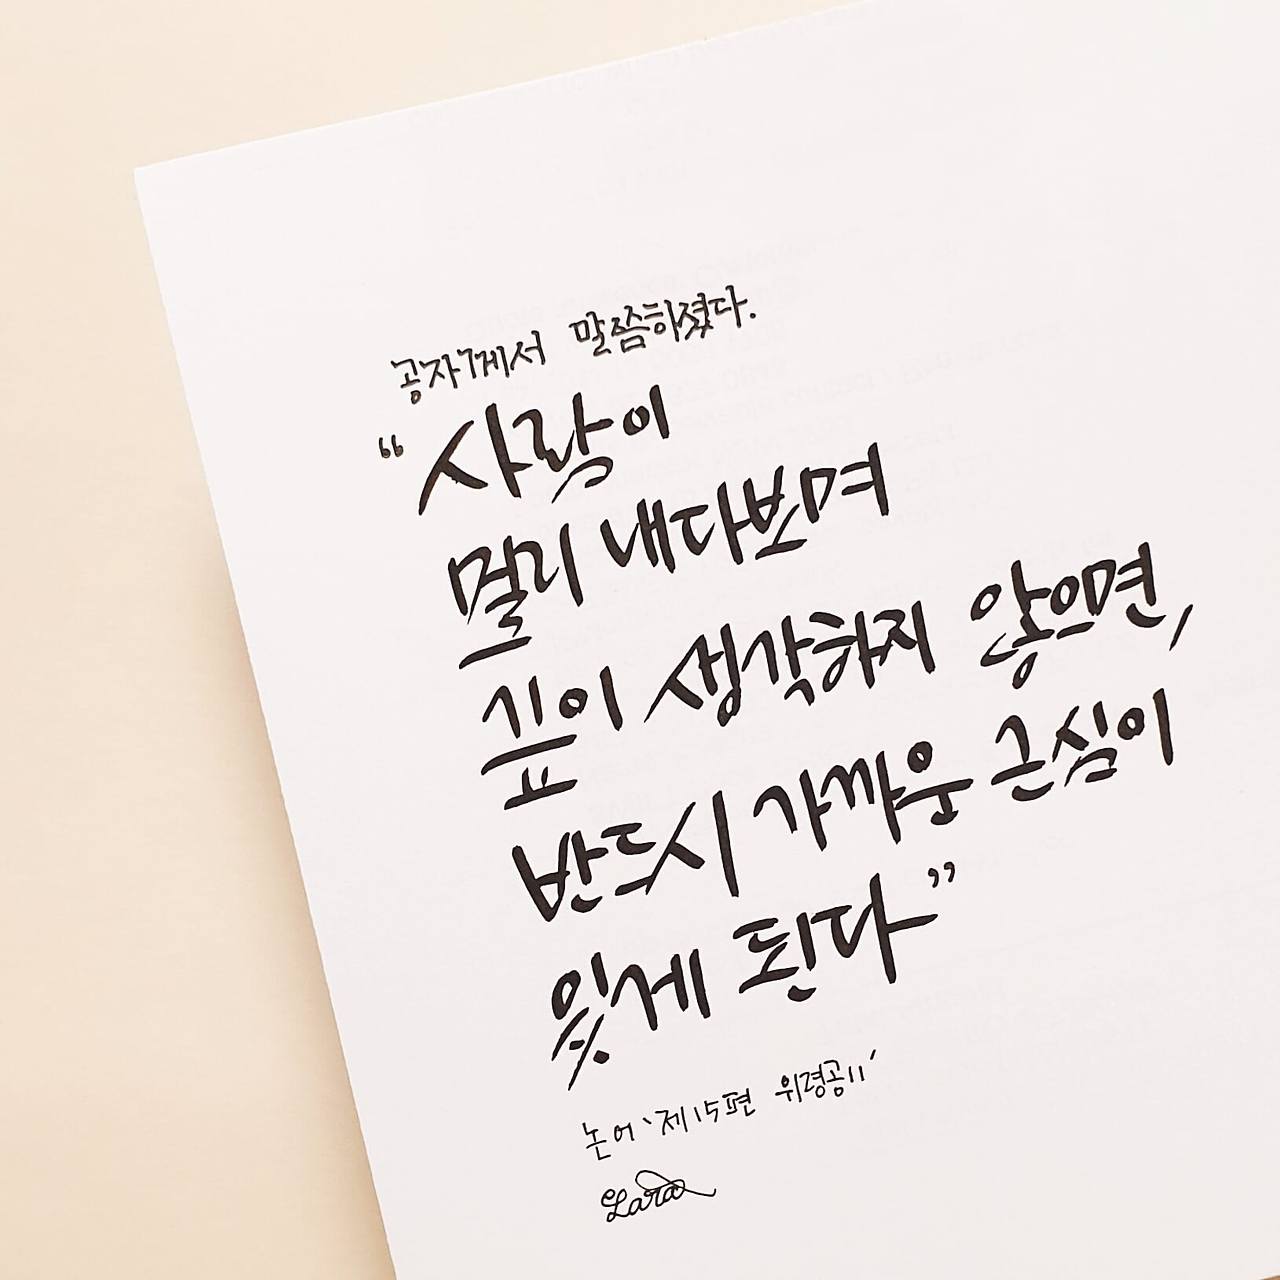 공자께서 말씀하셨다.
“사람이
멀리 내다보며
깊이 생각하지 않으면,
반드시 가까운 근심이
있게 된다”
논어 '제15편 위령공11'
Lara